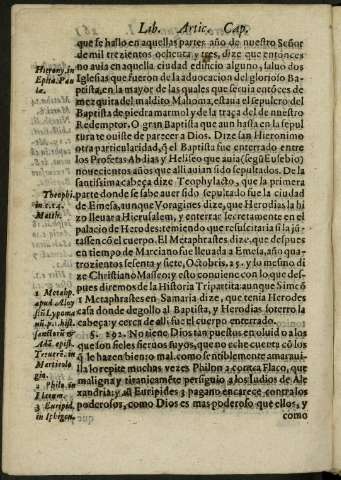 Lib. Artic. Cap.
que se hallo en aquellas partes año de nuestro Señor
de mil trezientos ochenta y tres, dize que entonces
no auia en aquella ciudad edificio alguno, saluo dos
Iglesias que fueron de la aduocacion del glorioso Ba-
ptista, en la mayor de las quales que seruia entõces de
mezquita del maldito Mahoma, estaua el sepulcro del
Baptista de piedra marmol y de la traça del de nuestro
Redemptor. O gran Baptista que aun hasta en la sepul
tura te ouiste de parecer a Dios. Dize san Hieronimo
otra particularidad, q̃ el Baptista fue enterrado entre
los Profetas Abdias y Heliseo que auia (segũ Eusebio)
nouecientos años que alli auian sido sepultados. De la
santissima cabeça dize Teophylacto, que la primera
parte donde se sabe auer sido sepultado fue la ciudad
de Emesa, aunque Voragines dize, que Herodias la hi
zo lleuar a Hierusalem, y enterrar secretamente en el
palacio de Herodes: temiendo que resuscitaria si la jũ-
tassen cõ el cuerpo. El Metaphrastes dize, que despues
en tiempo de Marciano fue lleuada a Emesa, año qua-
trozientos sesenta y siete, Octobris, 25. y lo mesmo di-
ze Christiano Masseo: y esto conuiene con lo que des-
pues diremos de la Historia Tripartita: aunque Simeõ
1 Metaphrastes en Samaria dize, que tenia Herodes
casa donde degollo al Baptista, y Herodias soterro la
cabeça y cerca de alli fue el cuerpo enterrado.
§. 292. No tiene Dios tan puestos en oluido a los
que son fieles sieruos suyos, que no eche cuenta cõ los
q̃ le hazen bien o mal. como sentiblemente amaraui-
lla lo repite muchas vezes Philon 2 contra Flaco, que
maligna y tiranicamẽte persiguio a los Iudios de Ale
xandria: y assi Euripides 3 pagano encarece contra los
poderosos, como Dios es mas poderoso que ellos, y
como
Hierony. in
Epita. Pau
læ.
Theophi.
in c.14.
Matth.
1 Metaph.
apud Aloy
siũ Lypoma
nũ. p. 1. hist.
sanctorũ &
Adã. epist.
Treuerẽ. in
Martirolo
gio.
2 Philo. in
Flacum.
3 Euripid.
in Iphigen.